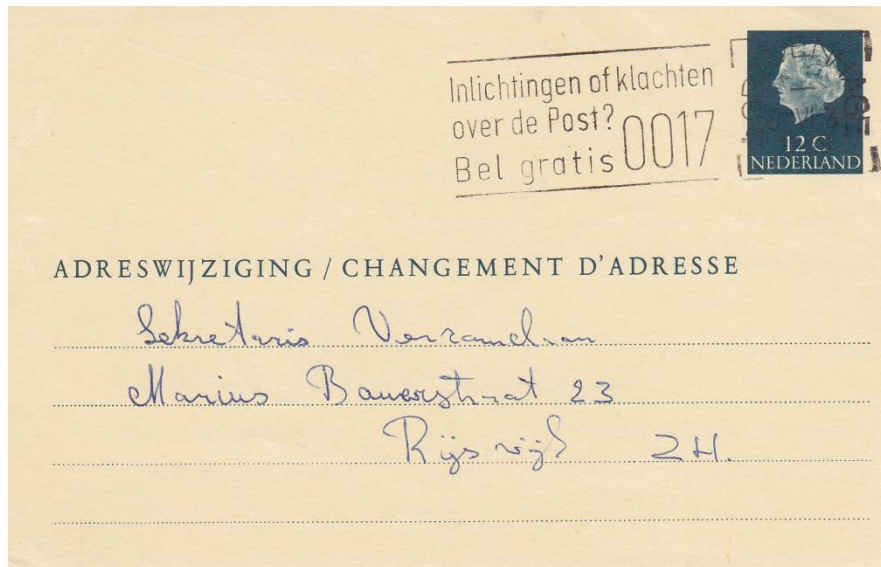 Inlichtingen of klachten
over de Post?
Bel gratis 0017
12 C
NEDERLAND
ADRESWIJZIGING / CHANGEMENT D'ADRESSE
Sekretaris
Marius Bauerstraat 23
Rijswijk ZH.